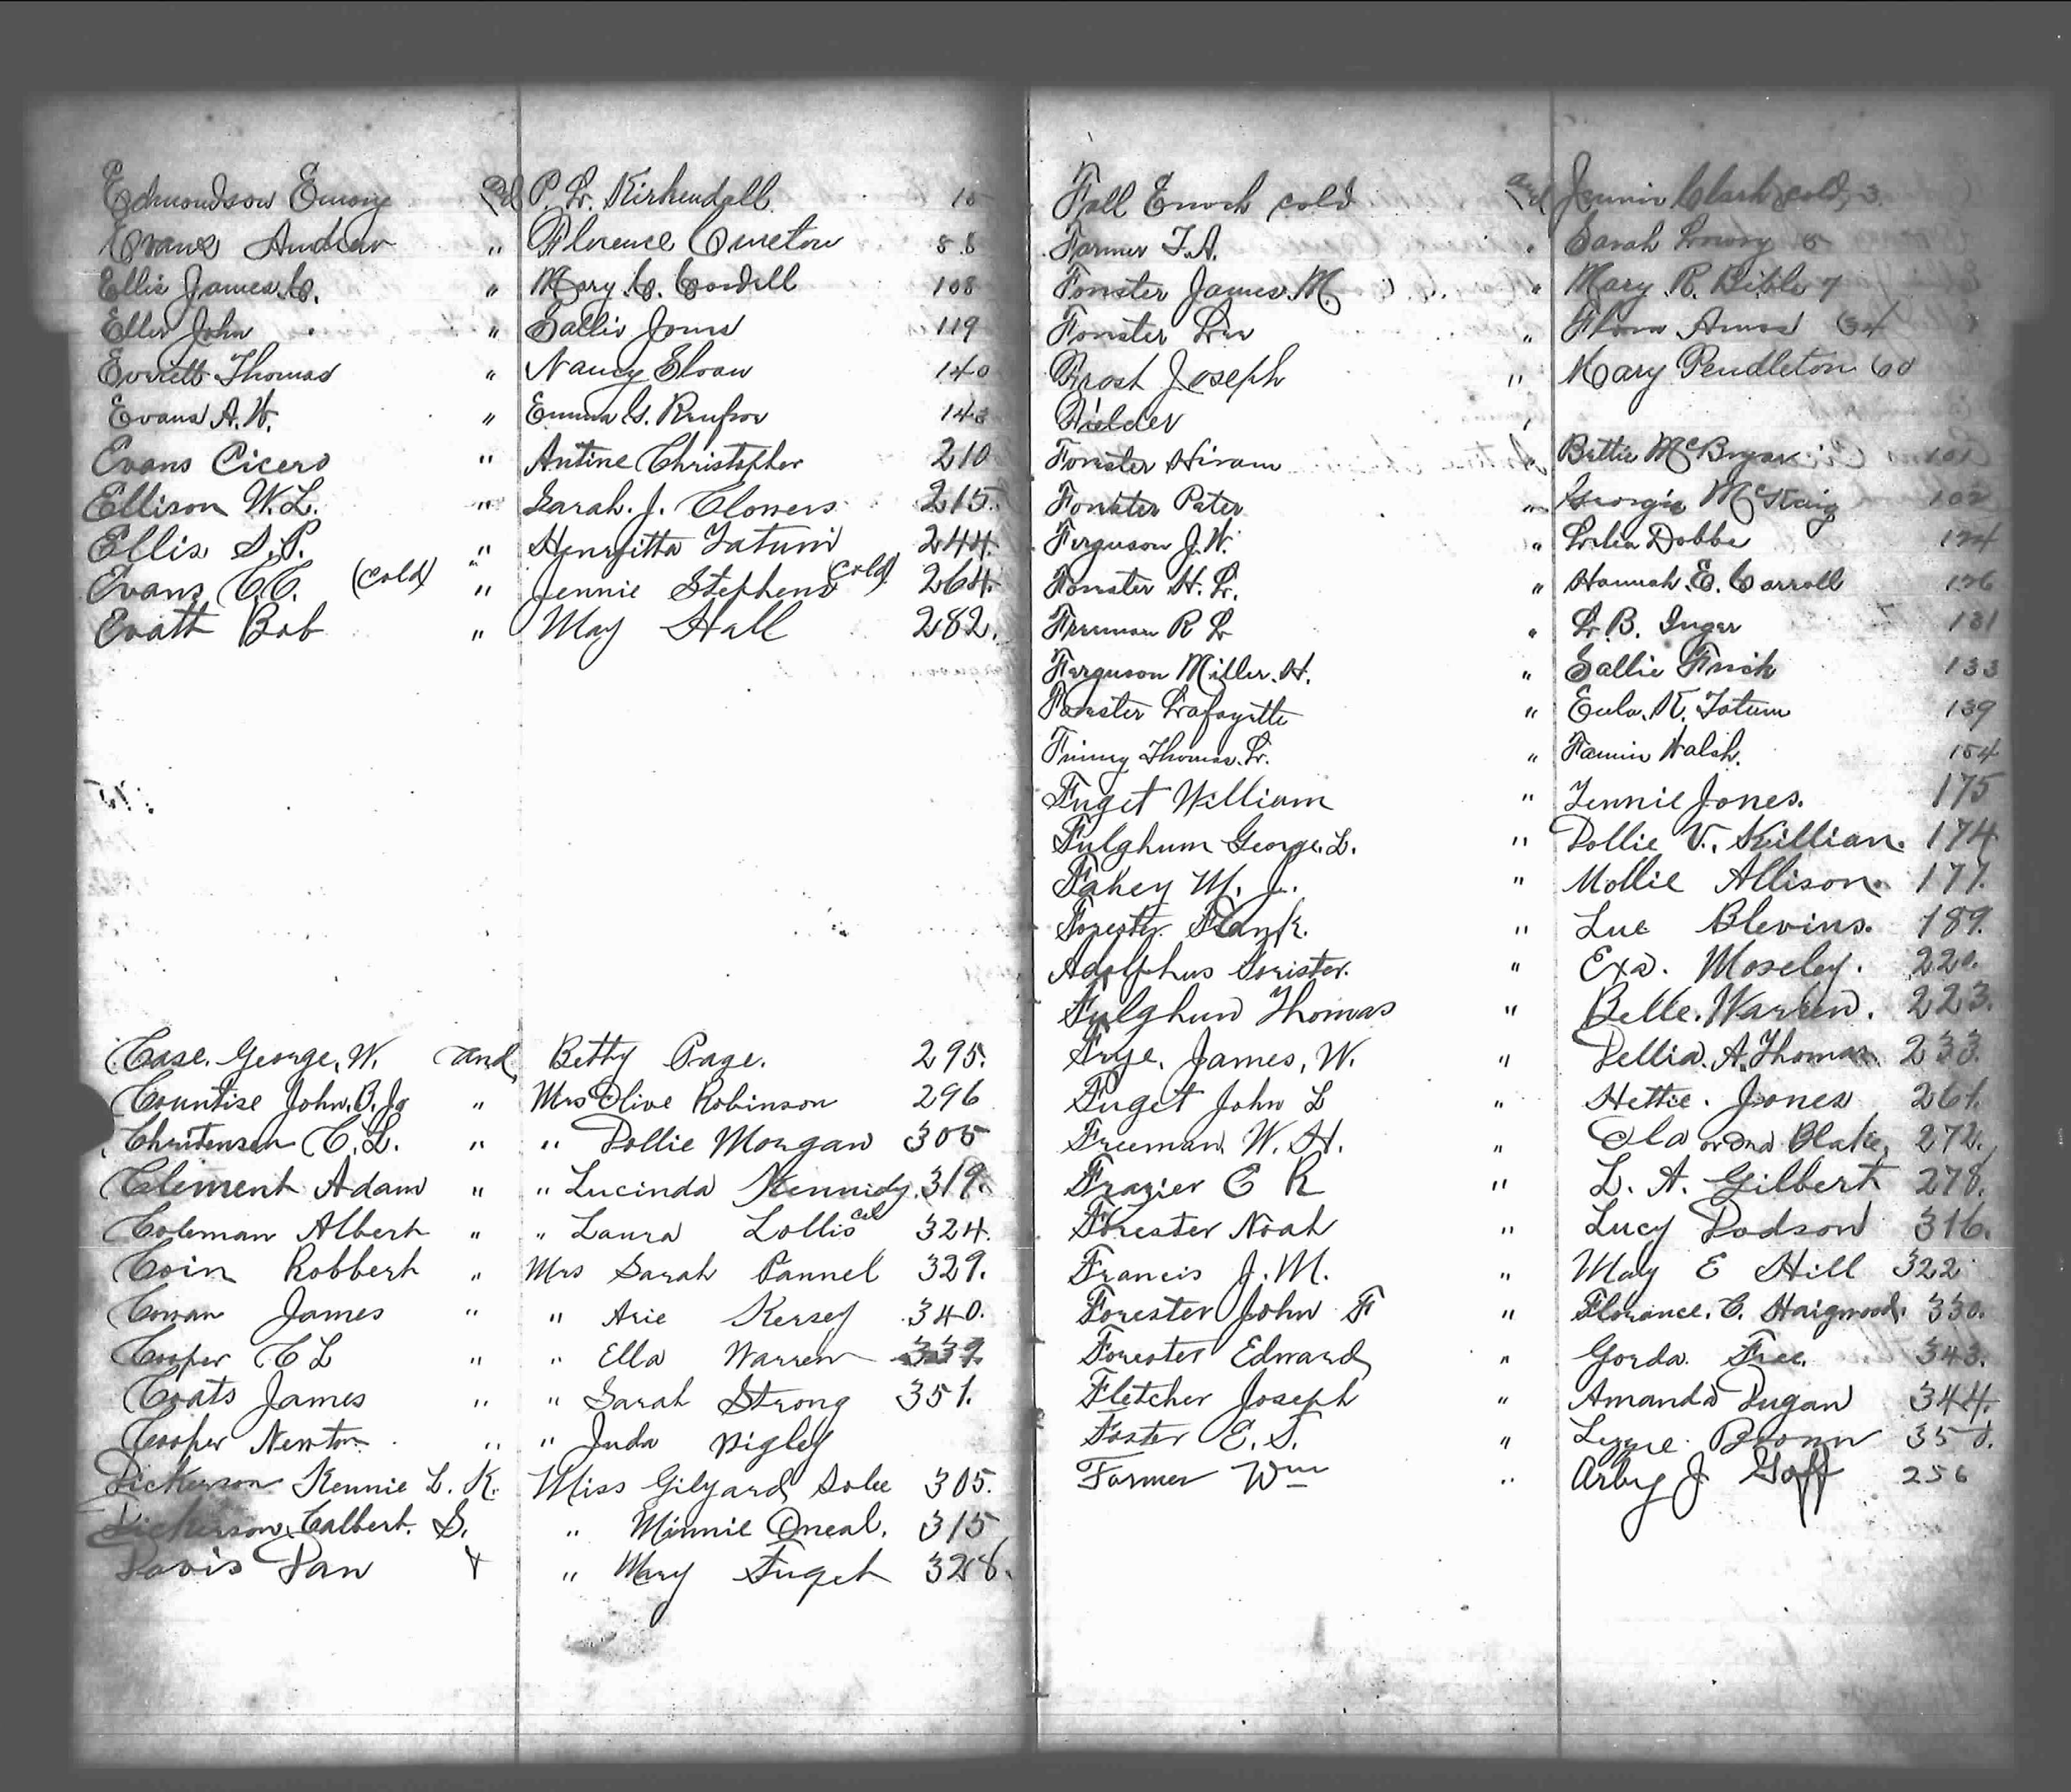 Edmondson Emory and P. L. Kirkendall 15
Evans Andrew " Florence Cureton 88
Ellis James C. " Mary C. Cordell 108
Eller John " Sallie Jones 119
Everett Thomas " Nancy Sloan 140
Evans A. W. " Emma G. 143
Evans Cicero " Antine Christopher 210
Ellison W. L. " Sarah. J. Clowers 215.
Ellis S. P. " Henryitta Tatum 244.
Evans C. C. (cold) " Jennie Stephens cold) 264.
Evatt Bob " May Hall 282.
Case. George, W. and Betty Page. 295.
Countise John. B. Jr " Mrs Olive Robinson 296
Christensen C. L. " " Dollie Morgan 305
Clement Adam " " Lucinda Kennidy. 319.
Coleman Albert " " Laura Lollis col 324.
Coin Robbert " Mrs Sarah Pannel 329.
Cowan James " " Arie Kersey 340.
Cooper C L " " Ella Warren 339.
Coats James " " Sarah Strong 351.
Cooper Newton " " Juda Wigley
Dickerson Kennie L. K. Miss Gilyard Solee 305.
Dickerson Calbert. S. " Minnie Oneal. 315
Davis Dan " Mary Fuget 328.
Fall Enoch cold and Jennie Clark cold, 3.
Farmer T. A. " Sarah Lowry 5
Forester James. M. " Mary. R. Bible 7
Forester Lee " Flora Amos 34
Frost Joseph " Mary Pendleton 60
Fielder
Forester Hiram " Bettie McBryar 101
Forester Peter " Georgia McCraig 102
Ferguson J. W. " Lelia Dobbs 124
Forester H. L. " Hannah. E. Carroll 126
Freeman R L " L. B. Inger 131
Ferguson Miller. H. " Sallie Frick 133
Forester Lafayette " Eula. K. Tatum 139
Finney Thomas. L. " Fannie Walsh. 154
Fuget William " Jennie Jones. 175
Fulghum George. L. " Dollie V. Killian. 174
Fahey M. J. " Mollie Allison. 177.
Forester Frank. " Lue Blevins. 189.
Adolphus Forister. " Exa. Moseley. 220.
Fulghun Thomas " Belle. Warren. 223.
Frye. James, W. " Dellia. A. Thomas. 233.
Fuget John L " Hettie. Jones 261.
Freeman W. H. " Ola or Ora Blake. 272.
Frazier E R " L. A. Gilbert 278.
Forester Noah " Lucy Dodson 316.
Francis J. M. " May E Hill 322
Forester John F " Florance. C. Haigwood. 330.
Forester Edward " Gorda. Free. 343.
Fletcher Joseph " Amanda Dugan 344.
Foster E. S. " Lizzie Brown 350.
Farmer Wm " Arby J. Goff 256